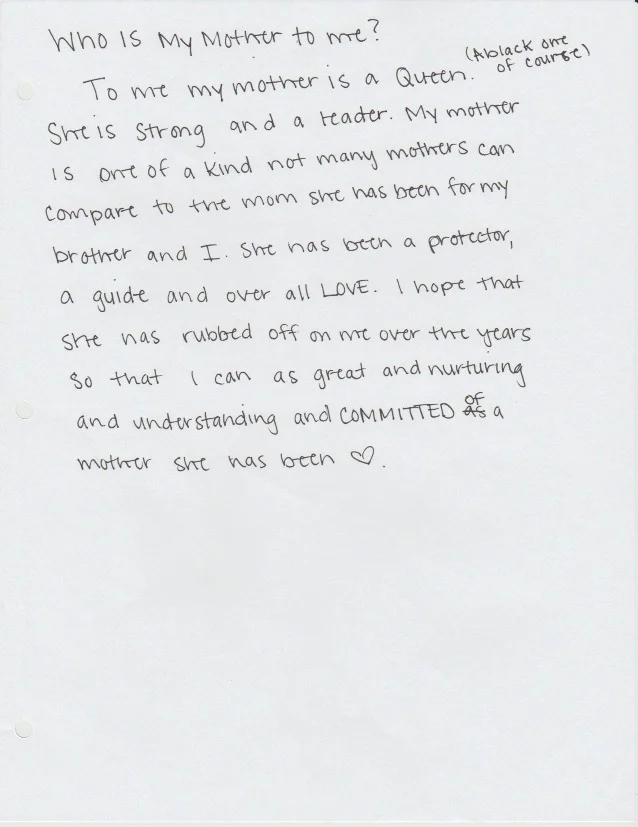 Who Is My Mother to me?
To me my mother is a Queen. (A black one
of course)
She is strong and a leader. My mother
is one of a kind not many mothers can
compare to the mom she has been for my
brother and I. She has been a protector,
a guide and over all LOVE. I hope that
she has rubbed off on me over the years
so that I can as great and nurturing
and understanding and COMMITTED as of a
mother she has been ♡.